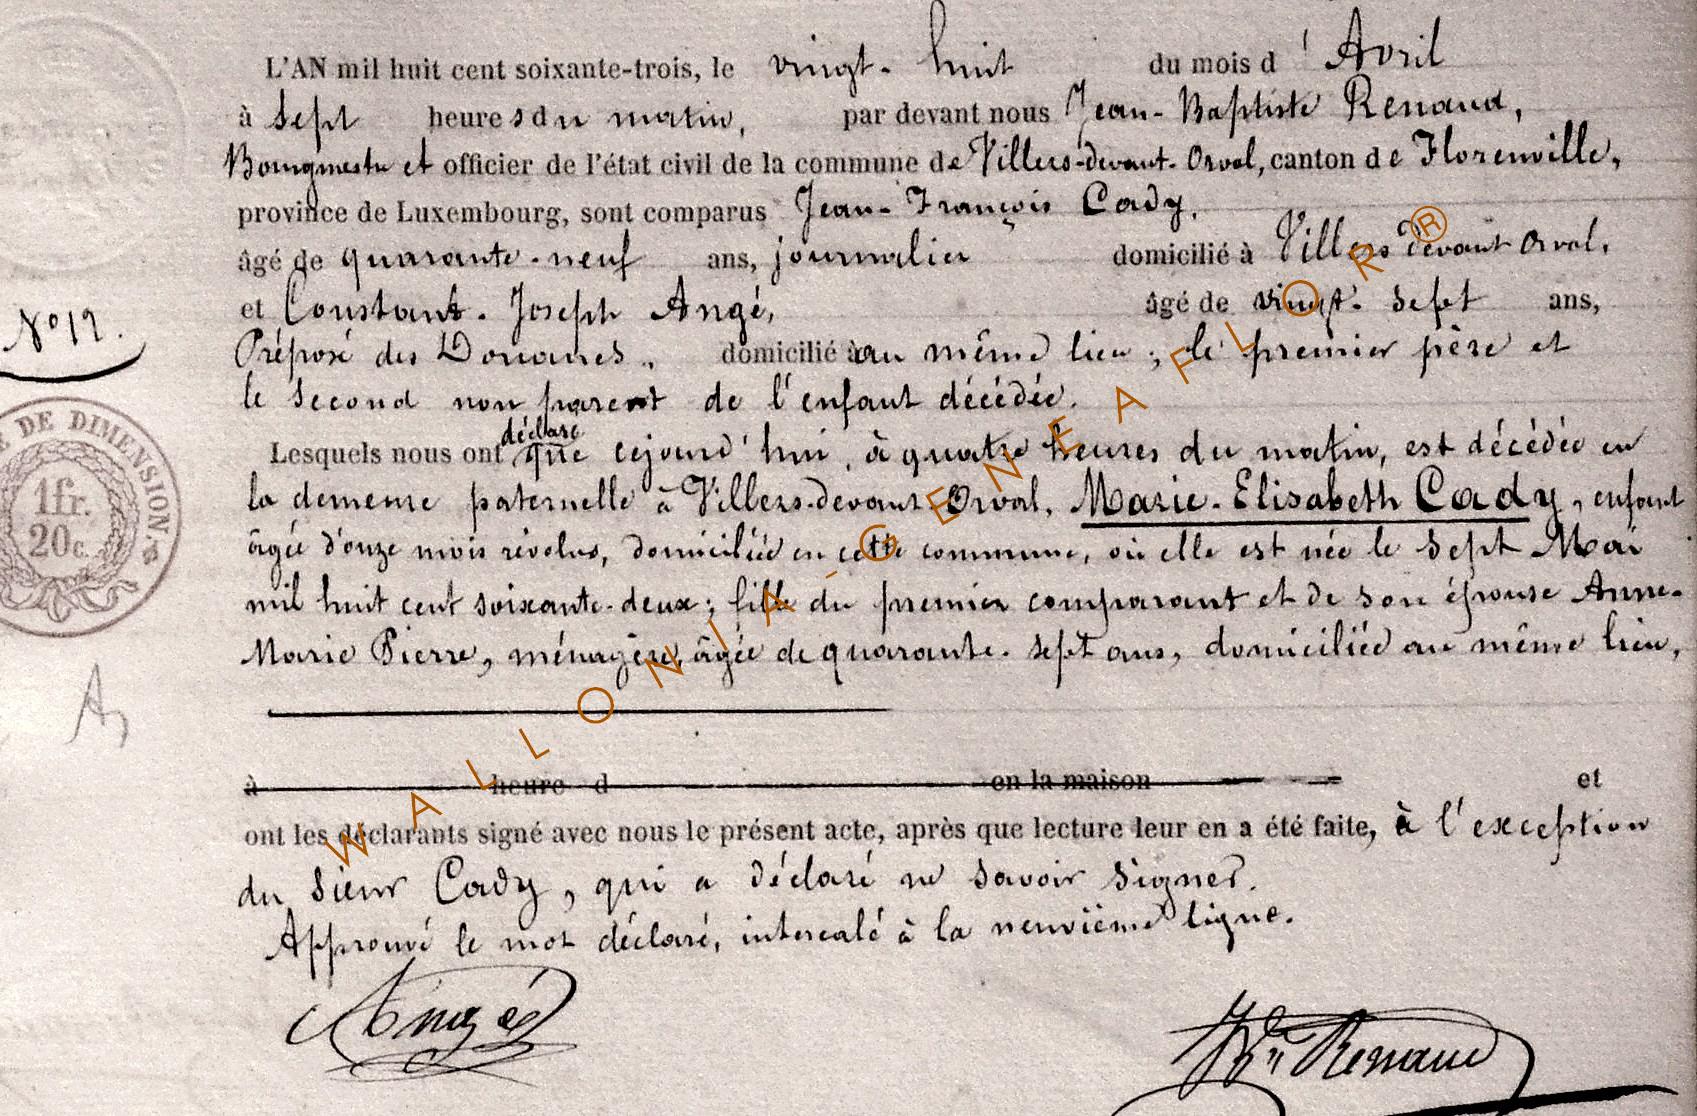 L'AN mil huit cent soixante-trois, le vingt-huit du mois d'Avril
à sept heures du matin, par devant nous Jean-Baptiste Renaud,
Bourgmestre et officier de l'état civil de la commune de Villers-devant-Orval, canton de Florenville,
province de Luxembourg, sont comparus Jean-François Cady,
âgé de quarante-neuf ans, journalier domicilié à Villers devant Orval,
et Constant-Joseph Angé, âgé de vingt-sept ans,
N° 12.
Préposé des Douanes, domicilié à au même lieu; le premier père et
le second non parent de l'enfant décédée.
déclaré
Lesquels nous ont que cejourd'hui, à quatre heures du matin, est décédée en
la demeure paternelle à Villers-devant-Orval, Marie-Elisabeth Cady, enfant
âgée d'onze mois révolus, domiciliée en cette commune, où elle est née le sept Mai
mil huit cent soixante-deux; fille du premier comparant et de son épouse Anne-
Marie Pierre, ménagère, âgée de quarante-sept ans, domiciliée au même lieu,
à heure d en la maison et
ont les déclarants signé avec nous le présent acte, après que lecture leur en a été faite, à l'exception
du sieur Cady, qui a déclaré ne savoir signer.
Approuvé le mot déclaré, intercalé à la neuvième ligne.
Angé
JBte Renaud
E DE DIMENSION.
1fr.
20c.
WALLONIA-GENEAFLOR®